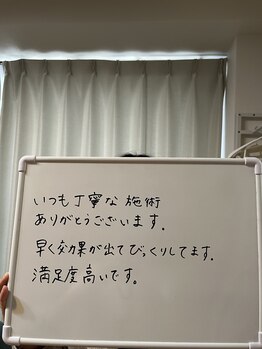 いつも丁寧な施術
ありがとうございます.
早く効果が出てびっくりしてます.
満足度高いです。